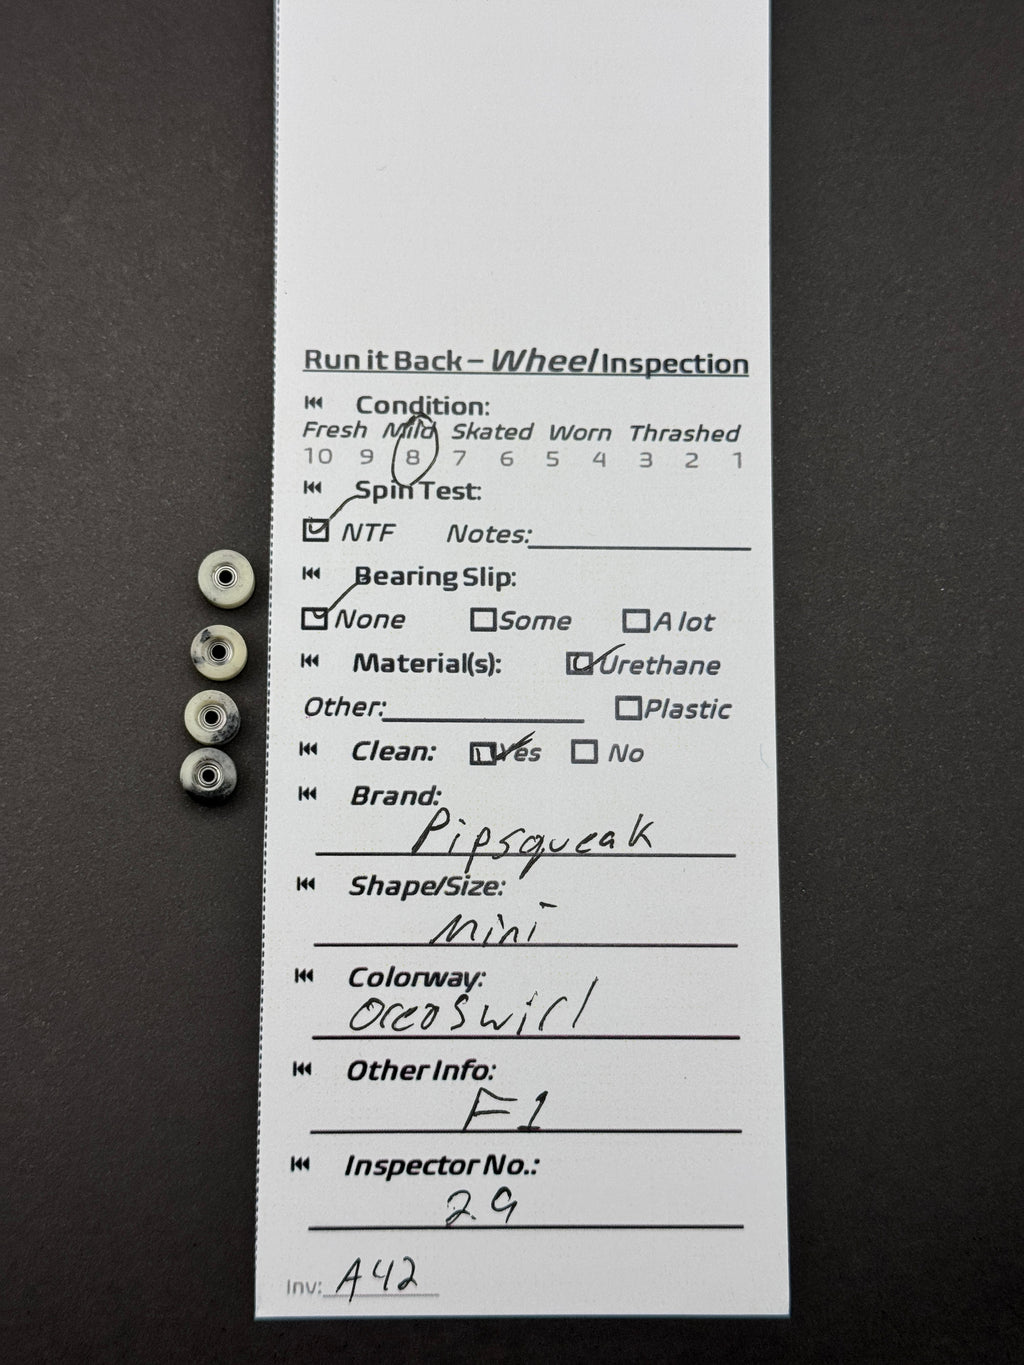 Run it Back – Wheel Inspection
Condition:
Fresh Mild Skated Worn Thrashed
10 9 8 7 6 5 4 3 2 1
Spin Test:
NTF Notes:
Bearing Slip:
None Some A lot
Material(s): Urethane
Other: Plastic
Clean: Yes No
Brand:
Pipsqueak
Shape/Size:
Mini
Colorway:
Oreo Swirl
Other Info:
F1
Inspector No.:
29
Inv: A42